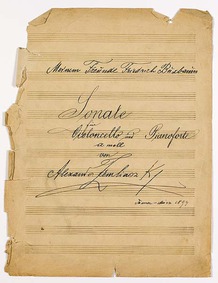 Meinem Freunde Friedrich Buxbaum
Sonate
Violoncello und Pianoforte
a moll
von
Alexander Zemlinszky
1894